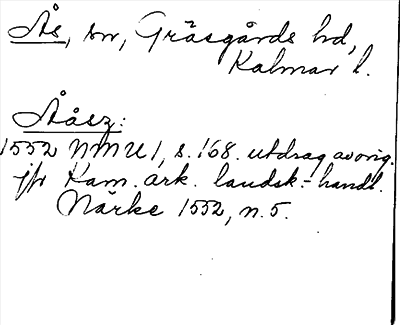 Ås, sn, Gräsgårds hd,
Kalmar l.
Aåsz:
1552 NMU 1, s. 168. utdrag av orig.
jfr Kam. ark. landsk.-handl.
Närke 1552, n. 5.